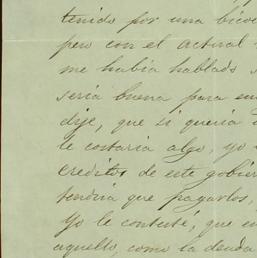 tenido por una bicoca
pero con el actual
me habia hablado
seria buena para
dije, que si queria
le costaria algo, yo
creditos de este gobier
tendria que pagarlos,
Yo le contesté, que
aquello, como la deuda